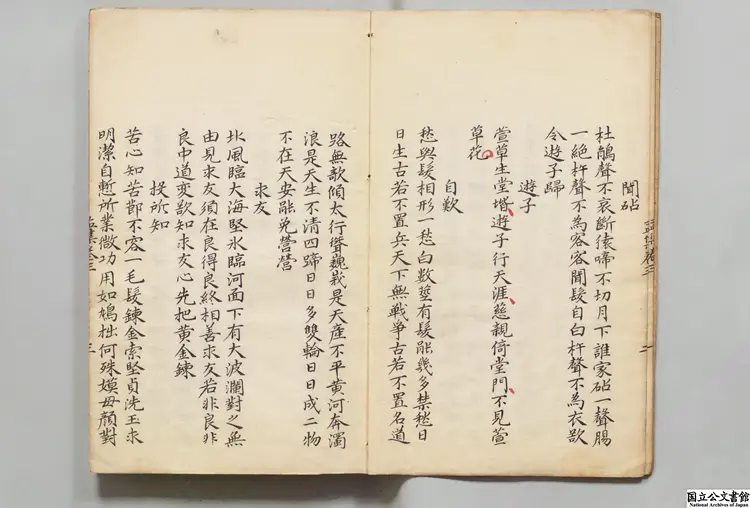 聞砧
杜鵑聲不哀斷猿啼不切月下誰家砧一聲腸
一絕杵聲不為客客聞髮自白杵聲不為衣欲
令遊子歸
遊子
萱草生堂堦遊子行天涯慈親倚堂門不見萱
草花
自歎
愁與髮相形一愁白數莖有髮能幾多禁愁日
日生古若不置兵天下無戰爭古若不置名道
路無欹傾太行聳巍峩是天產不平黃河奔濁
浪是天生不清四蹄日日多雙輪日日成二物
不在天安能免營營
求友
北風臨大海堅冰臨河面下有大波瀾對之無
由見求友須在良得良終相善求友若非良非
良中道變欲知求友心先把黃金鍊
投所知
苦心知苦節不容一毛髮鍊金索堅貞洗玉求
明潔自慙所業微功用如鳩拙何殊嫫母顏對
孟集卷三
二
三
国立公文書館
National Archives of Japan